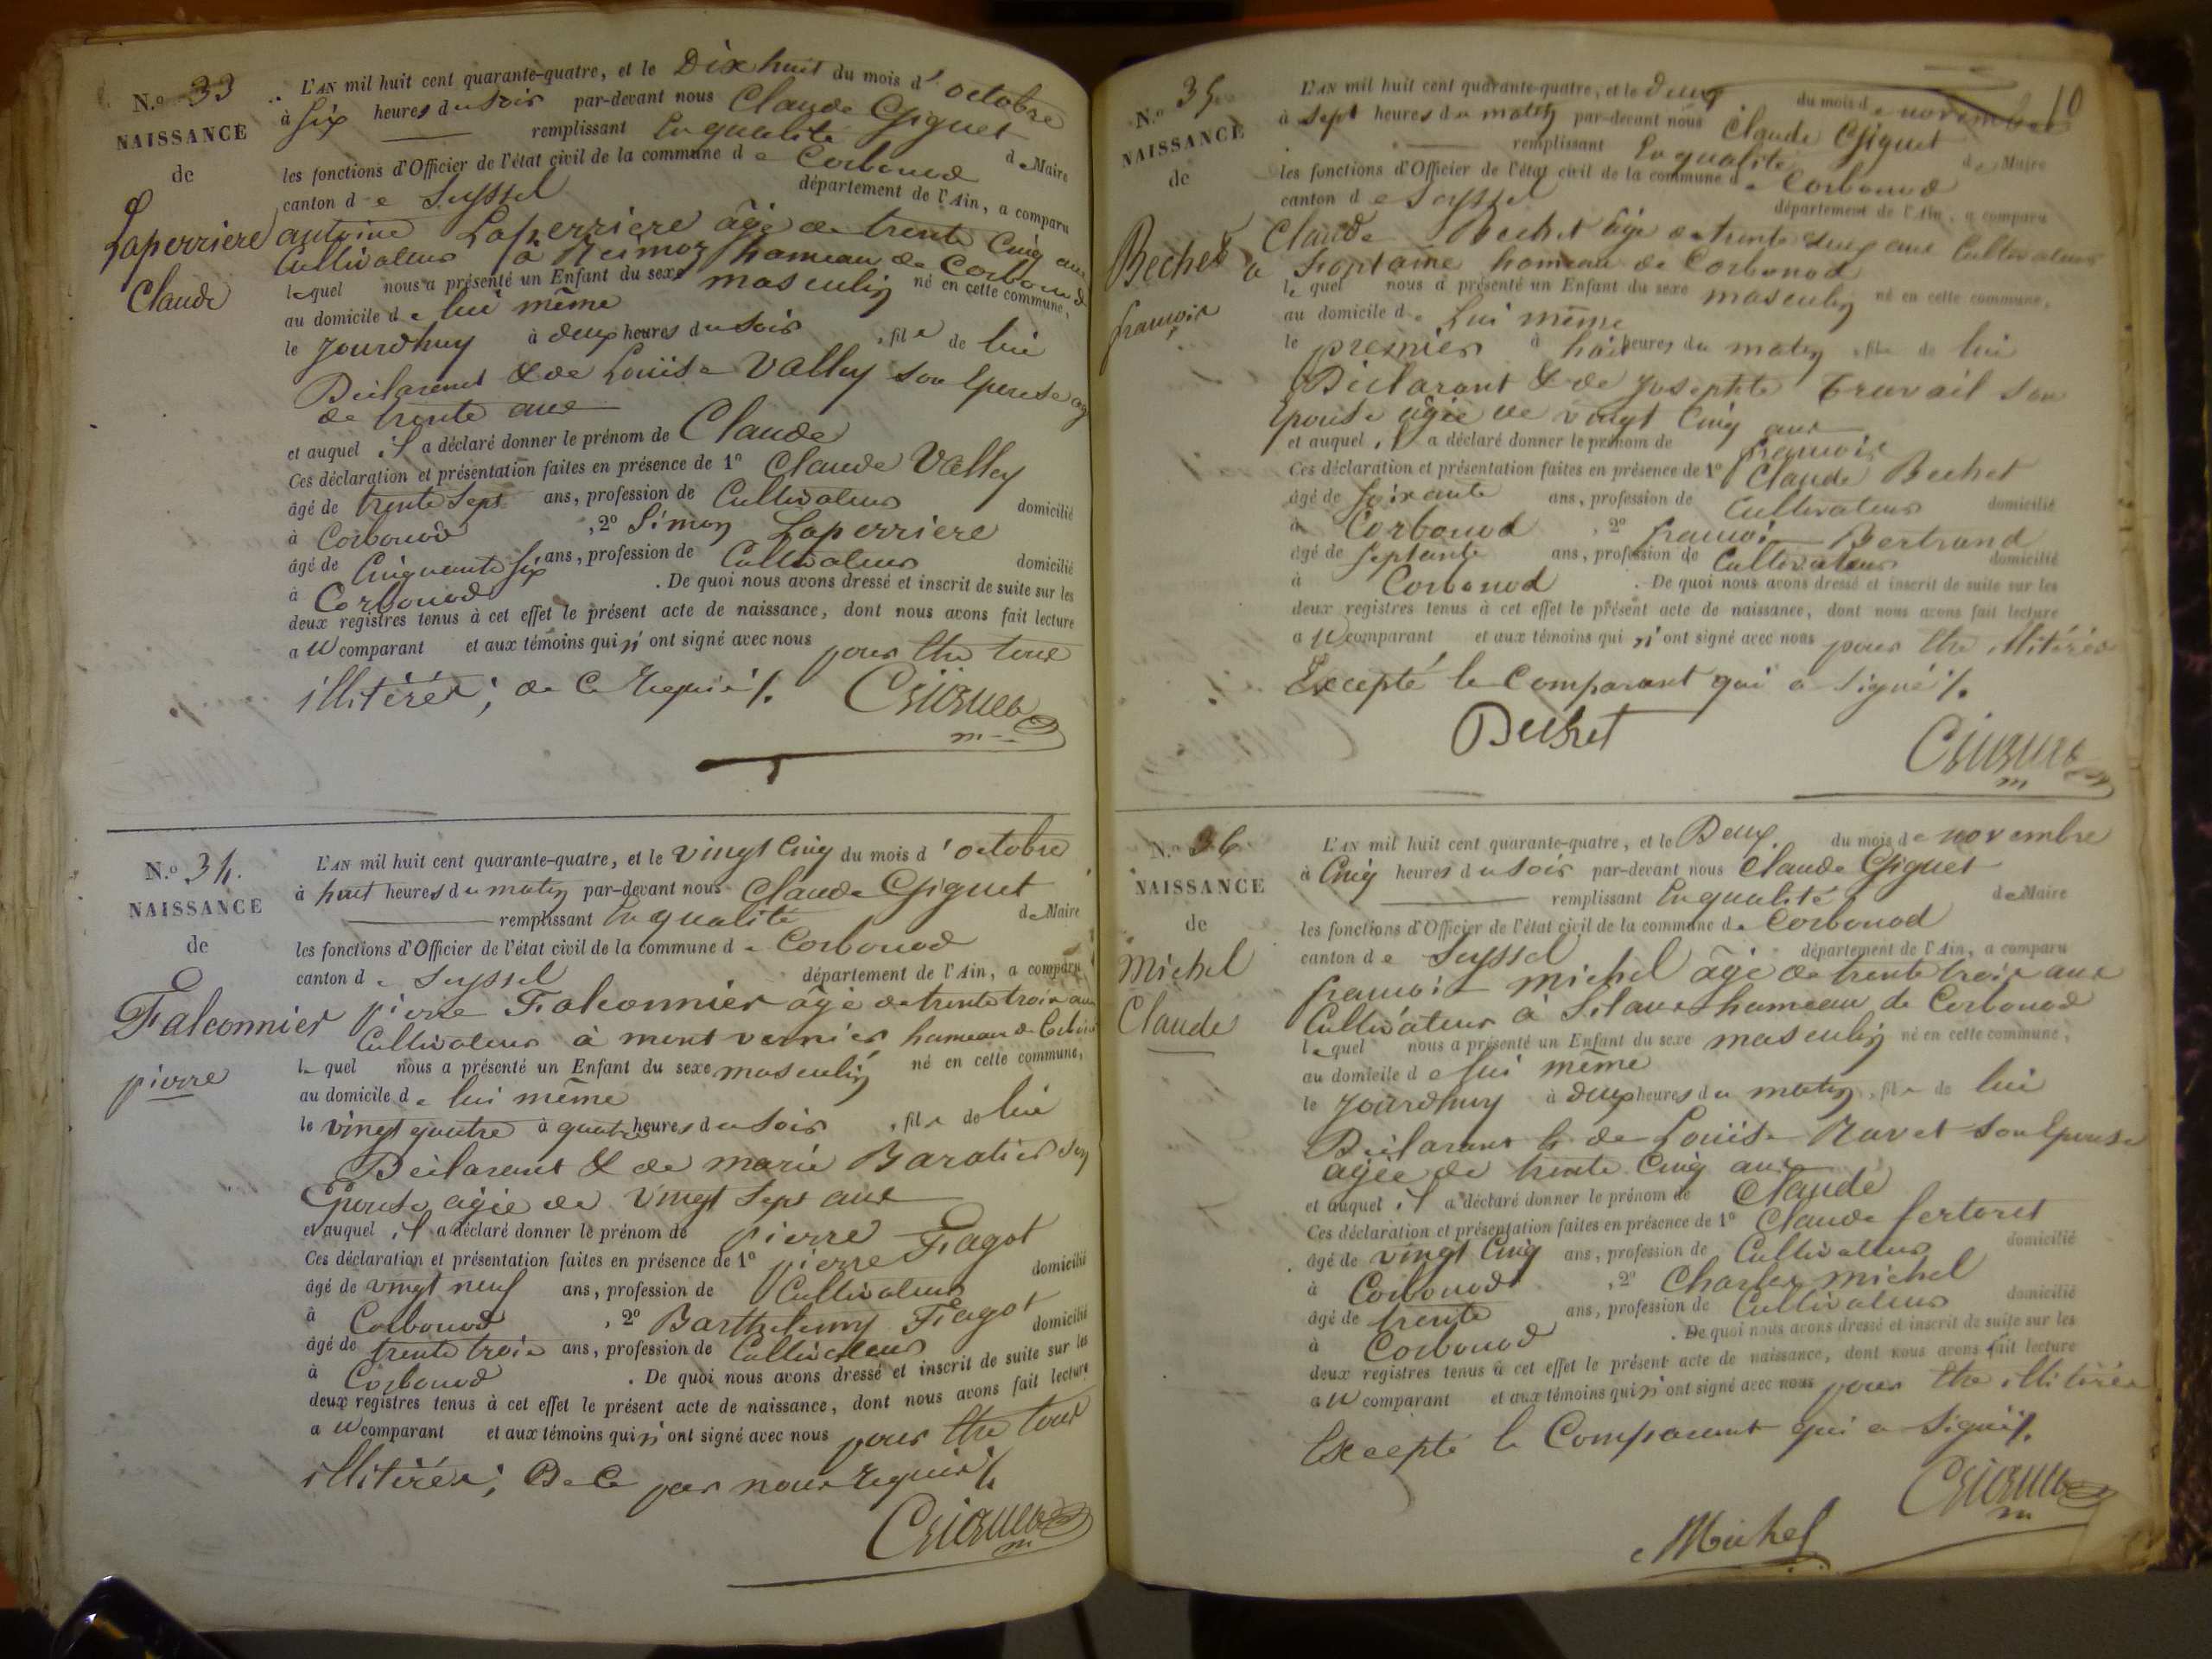 N.o 33
NAISSANCE
de
Laperriere
Claude
L'AN mil huit cent quarante-quatre, et le Dix huit du mois d'octobre
à six heures du soir par-devant nous Claude Giguet
remplissant En qualité de Maire
les fonctions d'Officier de l'état civil de la commune de Corbonod
canton de Seyssel département de l'Ain, a comparu
antoine Laperriere âgé de trente Cinq ans
Cultivateur à hameau de Corbonod
lequel nous a présenté un Enfant du sexe masculin né en cette commune,
au domicile de lui même
le jourdhuy à deux heures du soir, fils de lui
Déclarant & de Louise Valley son Epouse ag
de trente ans
et auquel il a déclaré donner le prénom de Claude
Ces déclaration et présentation faites en présence de 1o Claude Valley
âgé de trente sept ans, profession de Cultivateur domicilié
à Corbonod, 2o Simon Laperriere
âgé de Cinquante six ans, profession de Cultivateur domicilié
à Corbonod. De quoi nous avons dressé et inscrit de suite sur les
deux registres tenus à cet effet le présent acte de naissance, dont nous avons fait lecture
au comparant et aux témoins qui n'ont signé avec nous pour être tous
illitérés; de ce Requis /.
N.o 34.
NAISSANCE
de
Falconnier
pierre
L'AN mil huit cent quarante-quatre, et le vingt Cinq du mois d'octobre
à huit heures du matin par-devant nous Claude Giguet
remplissant En qualité de Maire
les fonctions d'Officier de l'état civil de la commune de Corbonod
canton de Seyssel département de l'Ain, a comparu
pierre Falconnier âgé de trente trois ans
Cultivateur à mont vernier hameau de
lequel nous a présenté un Enfant du sexe masculin né en cette commune,
au domicile de lui même
le vingt quatre à quatre heures du soir, fils de lui
Déclarant & de marie Baratier son
Epouse agée de vingt sept ans
et auquel il a déclaré donner le prénom de pierre
Ces déclaration et présentation faites en présence de 1o pierre Fagot
âgé de vingt neuf ans, profession de Cultivateur domicilié
à Corbonod, 2o Barthelemy Fagot
âgé de trente trois ans, profession de Cultivateur domicilié
à Corbonod. De quoi nous avons dressé et inscrit de suite sur les
deux registres tenus à cet effet le présent acte de naissance, dont nous avons fait lecture
au comparant et aux témoins qui n'ont signé avec nous pour être tous
illitérés; De Ce par nous Requis /.
10
N.o 35.
NAISSANCE
de
Bechet
françois
L'AN mil huit cent quarante-quatre, et le deux du mois de novembre
à sept heures du matin par-devant nous Claude Giguet
remplissant En qualité de Maire
les fonctions d'Officier de l'état civil de la commune de Corbonod
canton de Seyssel département de l'Ain, a comparu
Claude Bechet âgé de trente ans Cultivateur
à Fontaine hameau de Corbonod
lequel nous a présenté un Enfant du sexe masculin né en cette commune,
au domicile de Lui même
le premier à huit heures du matin, fils de lui
Déclarant & de Josephte travail son
Epouse âgée de vingt Cinq ans
et auquel il a déclaré donner le prénom de françois
Ces déclaration et présentation faites en présence de 1o Claude Bechet
âgé de soixante ans, profession de Cultivateur domicilié
à Corbonod, 2o françois Bertrand
âgé de septante ans, profession de Cultivateur domicilié
à Corbonod. De quoi nous avons dressé et inscrit de suite sur les
deux registres tenus à cet effet le présent acte de naissance, dont nous avons fait lecture
au comparant et aux témoins qui n'ont signé avec nous pour être illitérés
Excepté le Comparant qui a signé /.
Bechet
N.o 36.
NAISSANCE
de
Michel
Claude
L'AN mil huit cent quarante-quatre, et le Deux du mois de novembre
à Cinq heures du soir par-devant nous Claude Giguet
remplissant En qualité de Maire
les fonctions d'Officier de l'état civil de la commune de Corbonod
canton de Seyssel département de l'Ain, a comparu
françois michel âgé de trente trois ans
Cultivateur à Silans hameau de Corbonod
lequel nous a présenté un Enfant du sexe masculin né en cette commune,
au domicile de lui même
le jourdhuy à deux heures du matin, fils de lui
Déclarant & de Louise Ravet son Epouse
agée de trente Cinq ans
et auquel il a déclaré donner le prénom de Claude
Ces déclaration et présentation faites en présence de 1o Claude fertoret
âgé de vingt Cinq ans, profession de Cultivateur domicilié
à Corbonod, 2o Charles michel
âgé de trente ans, profession de Cultivateur domicilié
à Corbonod. De quoi nous avons dressé et inscrit de suite sur les
deux registres tenus à cet effet le présent acte de naissance, dont nous avons fait lecture
au comparant et aux témoins qui n'ont signé avec nous pour être illitérés
Excepté le Comparant qui a signé /.
Michel